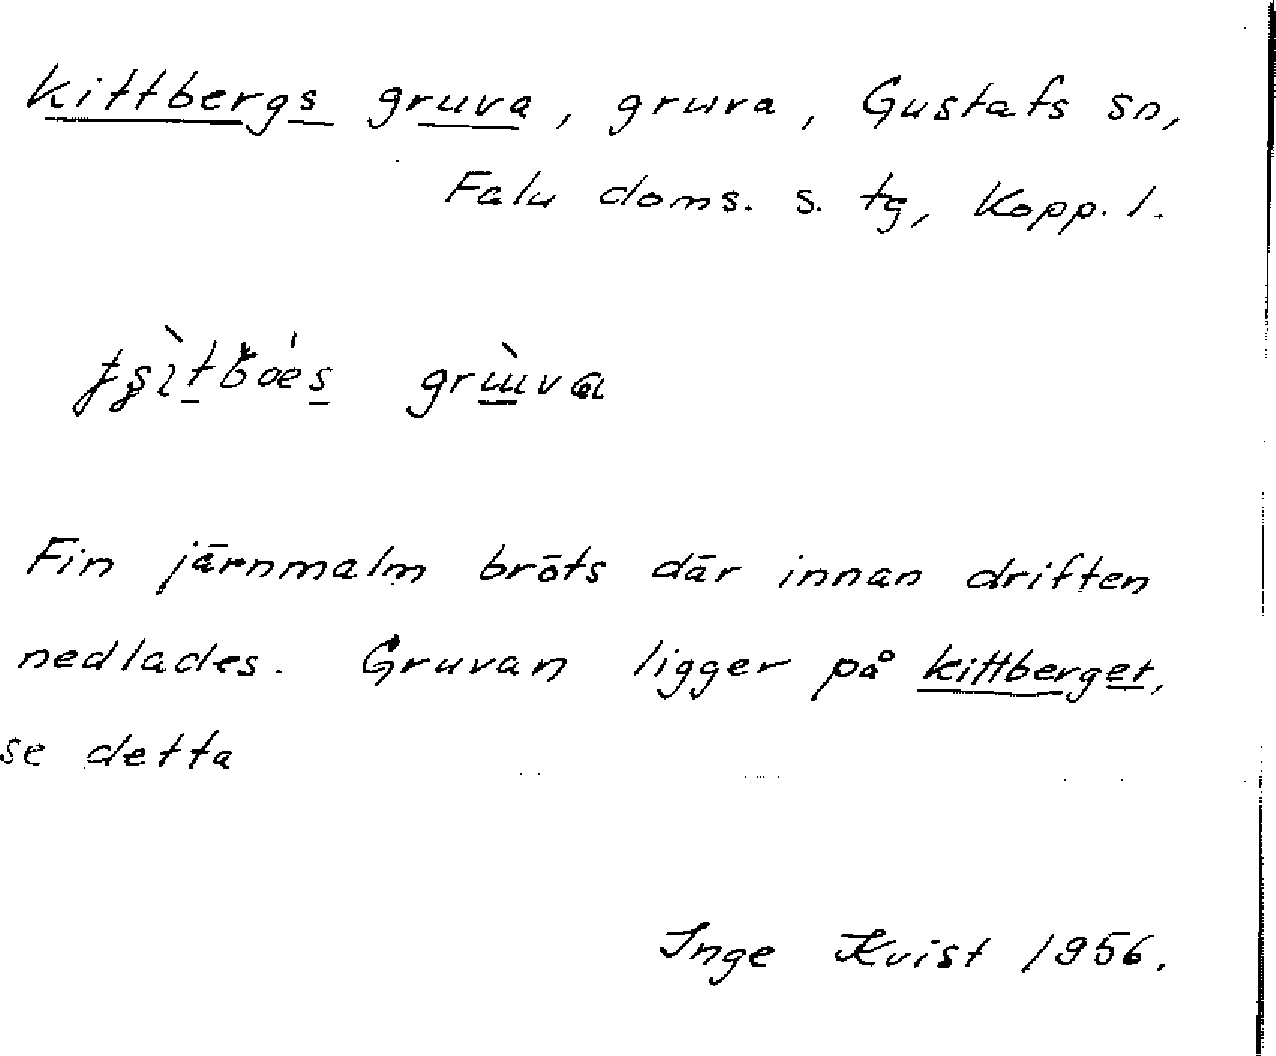 Kittbergs gruva, gruva, Gustafs sn,
Falu doms. s. tg, Kopp. l.
Fin järnmalm bröts där innan driften
nedlades. Gruvan ligger på Kittberget,
se detta
Inge Kvist 1956.